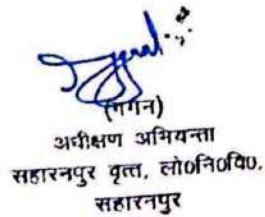 (गगन)
अधीक्षण अभियन्ता
सहारनपुर वृत्त, लो०नि०वि०,
सहारनपुर